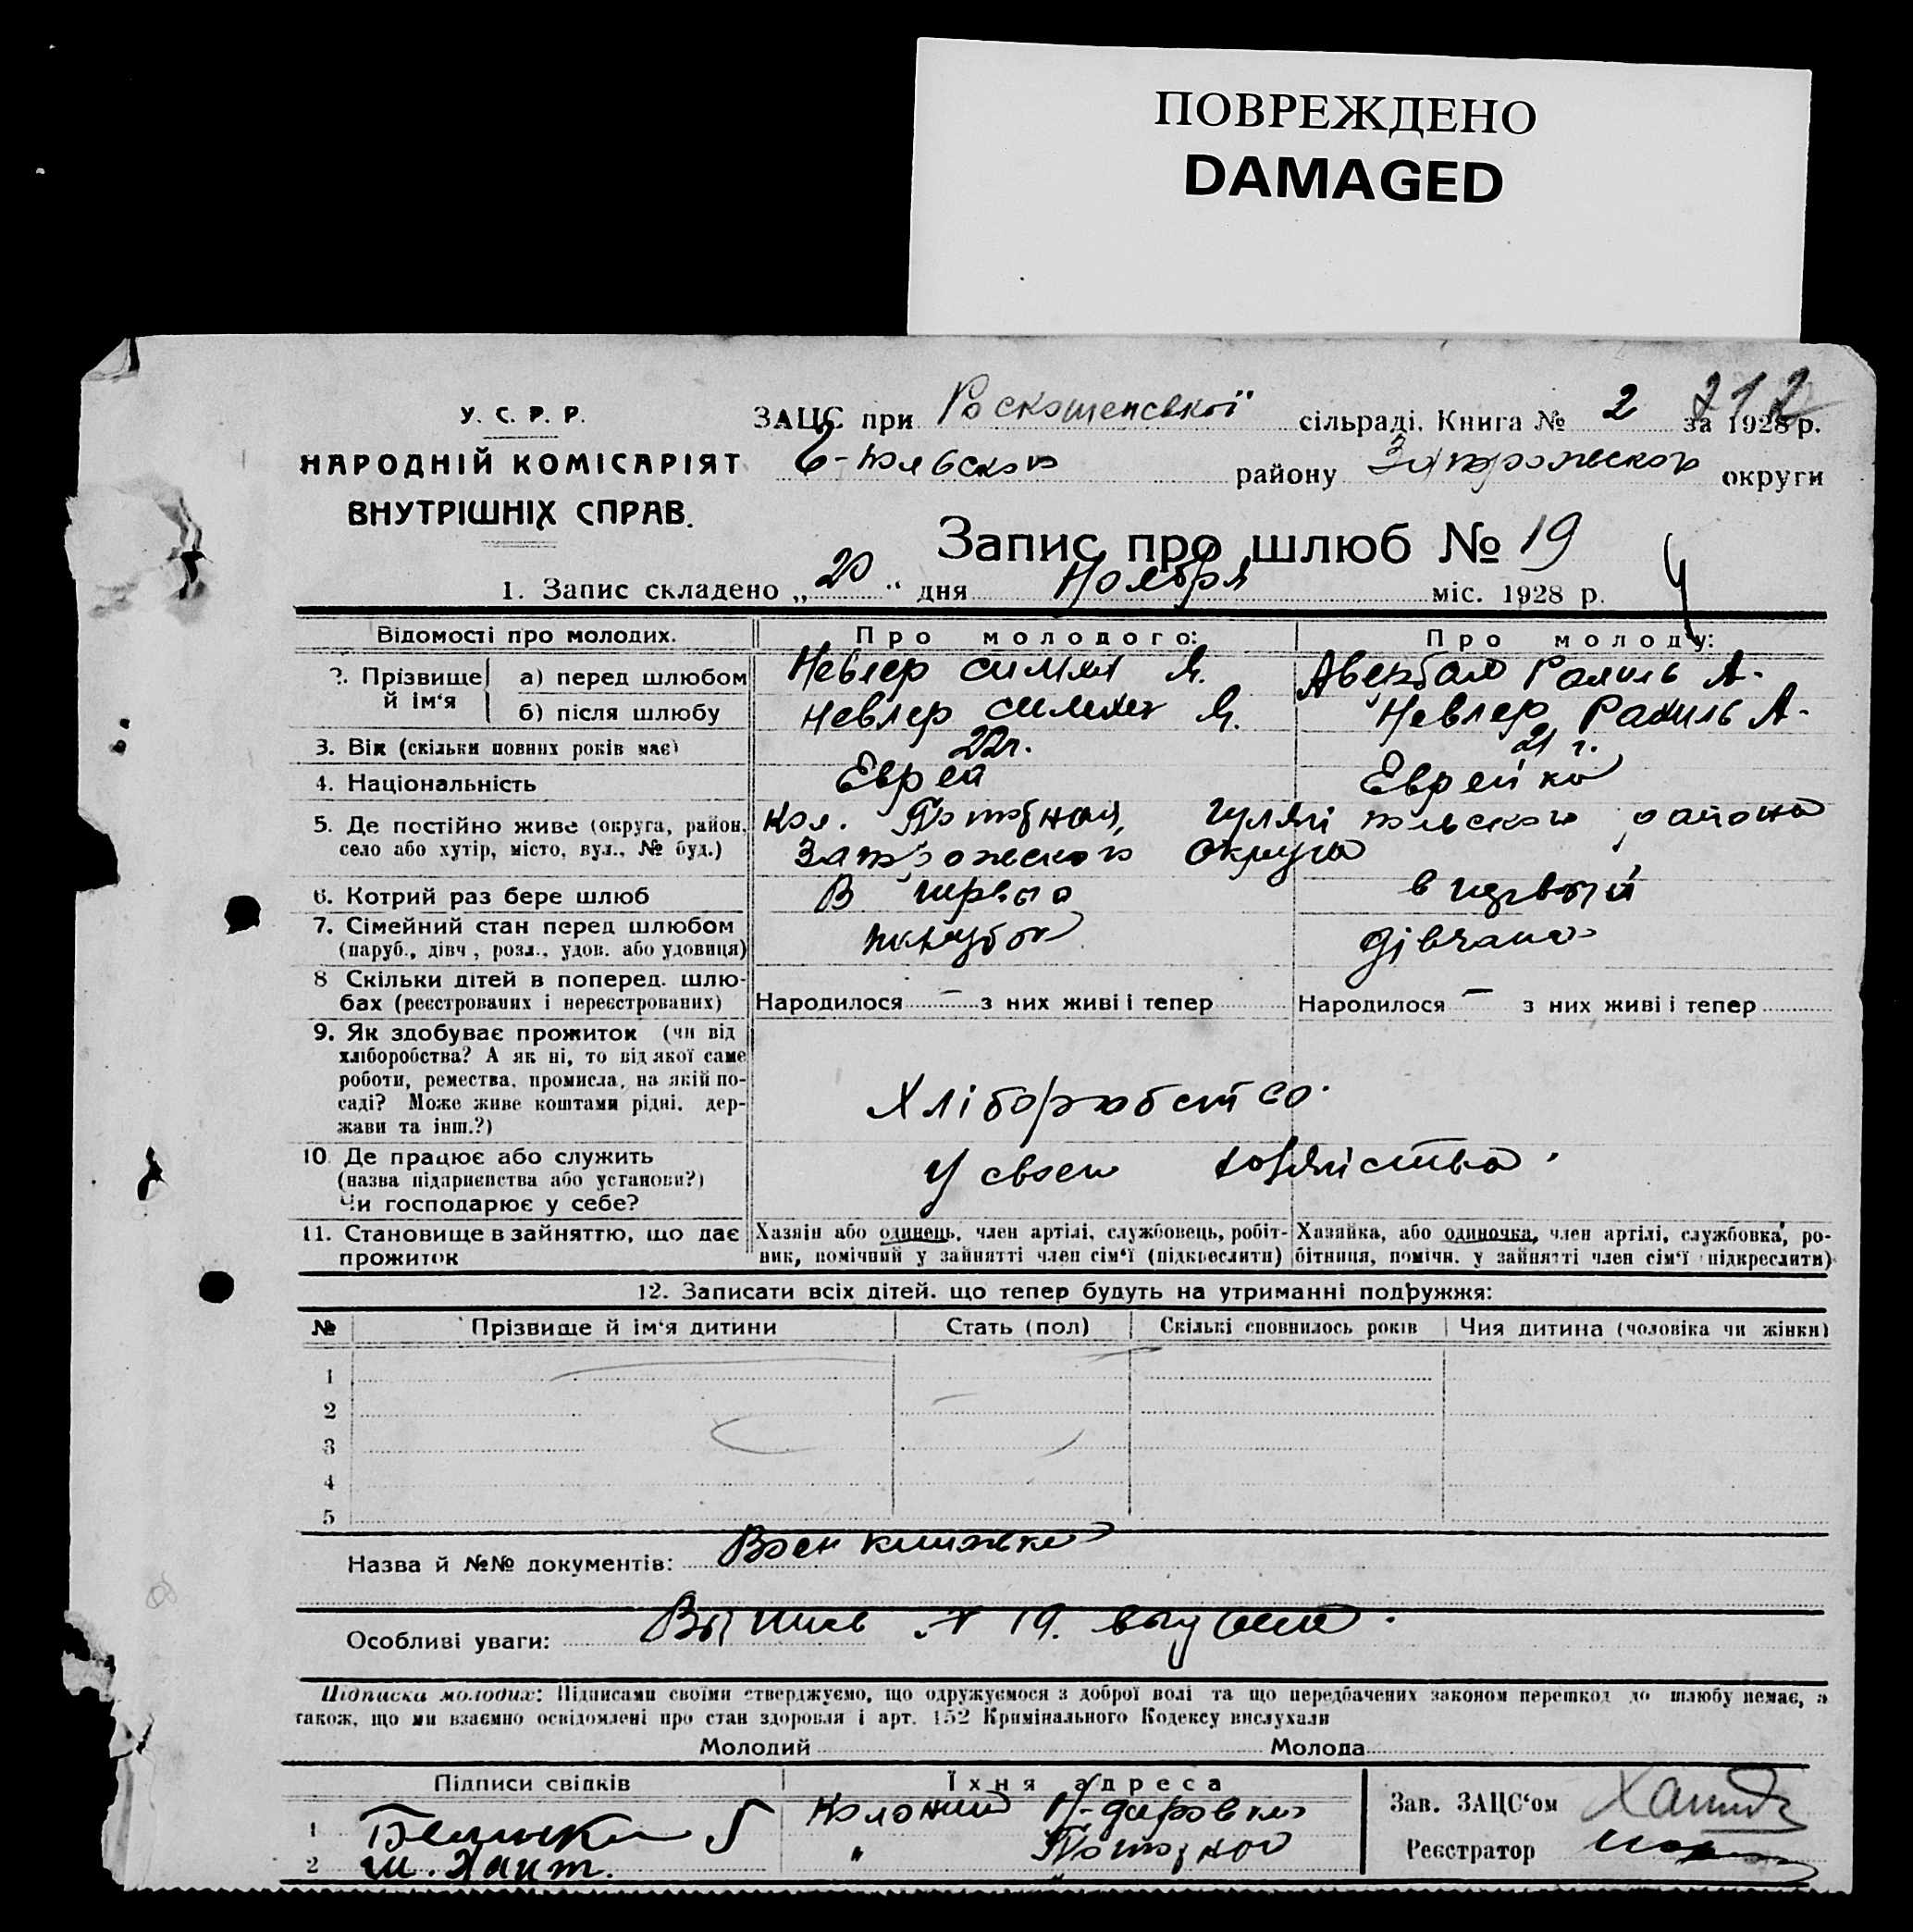 ПОВРЕЖДЕНО
DAMAGED
У. С. Р. Р.
НАРОДНІЙ КОМІСАРІЯТ
ВНУТРІШНІХ СПРАВ.
ЗАЦС при Роскошенської сільраді. Книга № 2 за 1928 р.
212
району Запорожского округи
Запис про шлюб № 19
1. Запис складено „20“ дня Ноября міс. 1928 р.
Відомості про молодих. Про молодого: Про молоду:
2. Прізвище й ім‘я
а) перед шлюбом Невлер Симха Я. Авербах Рахиль А.
б) після шлюбу Невлер Симха Я. Невлер Рахиль А.
3. Вік (скільки повних років має) 22 г. 21 г.
4. Національність Еврей Еврейка
5. Де постійно живе (округа, район, село або хутір, місто, вул., № буд.) Кол. Гуляйпольского района
Запорожского Округа
6. Котрий раз бере шлюб В первый в первый
7. Сімейний стан перед шлюбом парубок дівчана
(паруб., дівч., розл., удов. або удовиця)
8 Скільки дітей в поперед. шлю-
бах (реєстрованих і нереєстрованих) Народилося — з них живі і тепер Народилося — з них живі і тепер
9. Як здобуває прожиток (чи від
хліборобства? А як ні, то від якої саме
роботи, ремества, промисла, на якій по-
саді? Може живе коштами рідні, дер-
жави та інш.?)
Хліборобство.
10. Де працює або служить
(назва підприємства або установи?)
Чи господарює у себе?
У своем хозяйства.
11. Становище в зайняттю, що дає
прожиток
Хазяїн або одинець, член артілі, службовець, робіт-
ник, помічний у зайнятті член сім‘ї (підкреслити)
Хазяйка, або одиночка, член артілі, службовка, ро-
бітниця, помічн. у зайнятті член сім‘ї (підкреслити)
12. Записати всіх дітей, що тепер будуть на утриманні подружжя:
№ Прізвище й ім‘я дитини Стать (пол) Скількі сповнилось років Чия дитина (чоловіка чи жінки)
1
2
3
4
5
Назва й №№ документів: Воен книжка
Особливі уваги: Выпись № 19. выдана.
Підписка молодих: Підписами своїми стверджуємо, що одружуємося з доброї волі та що передбачених законом перешкод до шлюбу немає, а
також, що ми взаємно освідомлені про стан здоровля і арт. 152 Кримінального Кодексу вислухали
Молодий Молода
Підписи свідків Їхня адреса
1 Колонии
2 Ш. "
Зав. ЗАЦС‘ом
Реєстратор